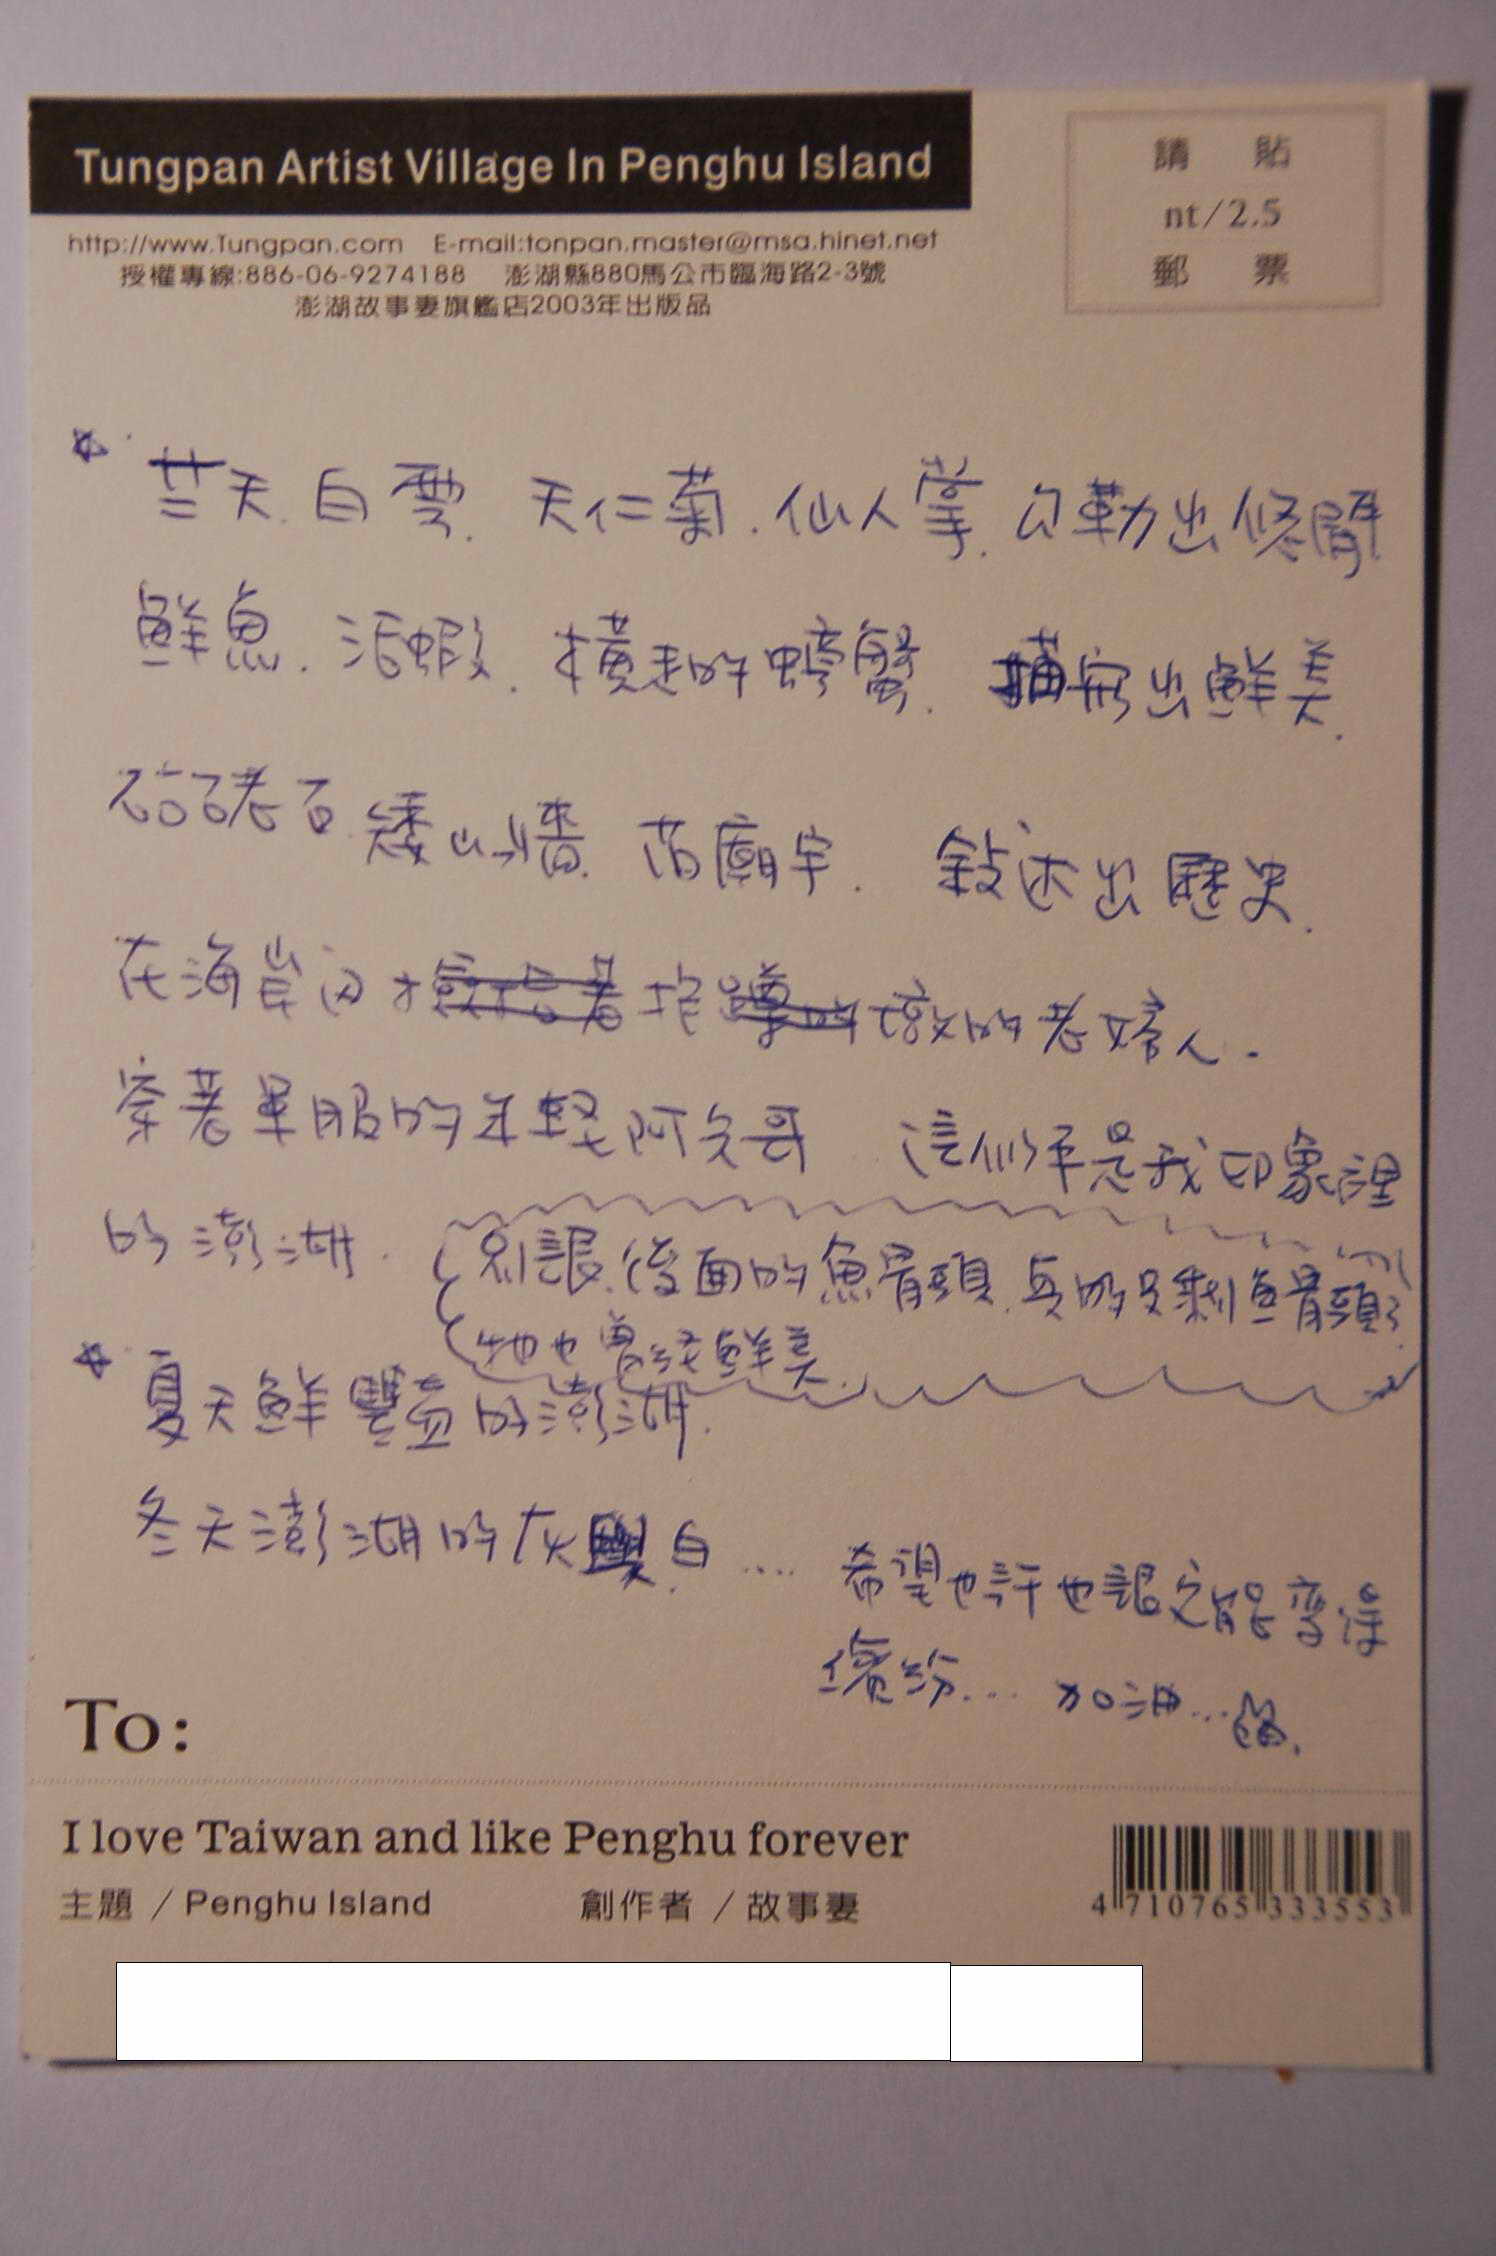 Tungpan Artist Village In Penghu Island
請 貼
nt/2.5
郵 票
http://www.Tungpan.com E-mail:tonpan.master@msa.hinet.net
授權專線:886-06-9274188 澎湖縣880馬公市臨海路2-3號
澎湖故事妻旗艦店2003年出版品
天.白雲.天仁菊.仙人掌.勾勒出修閒
鮮魚.活蝦.橫走的螃蟹.描寫出鮮美.
硓石矮山牆.古廟宇.敍述出歷史.
在海岸 的老婦人.
穿著軍服的年輕阿兵哥 這似乎是我印象裡
的澎湖.
別誤後面的魚骨頭.真的只剩魚骨頭了.
牠也曾經鮮美.
夏天鮮豐盈的澎湖.
冬天澎湖的灰 白....
希望也許也認它能變得
繽紛.... 加油...
To:
I love Taiwan and like Penghu forever
主題 / Penghu Island 創作者 / 故事妻
4 710765 333553